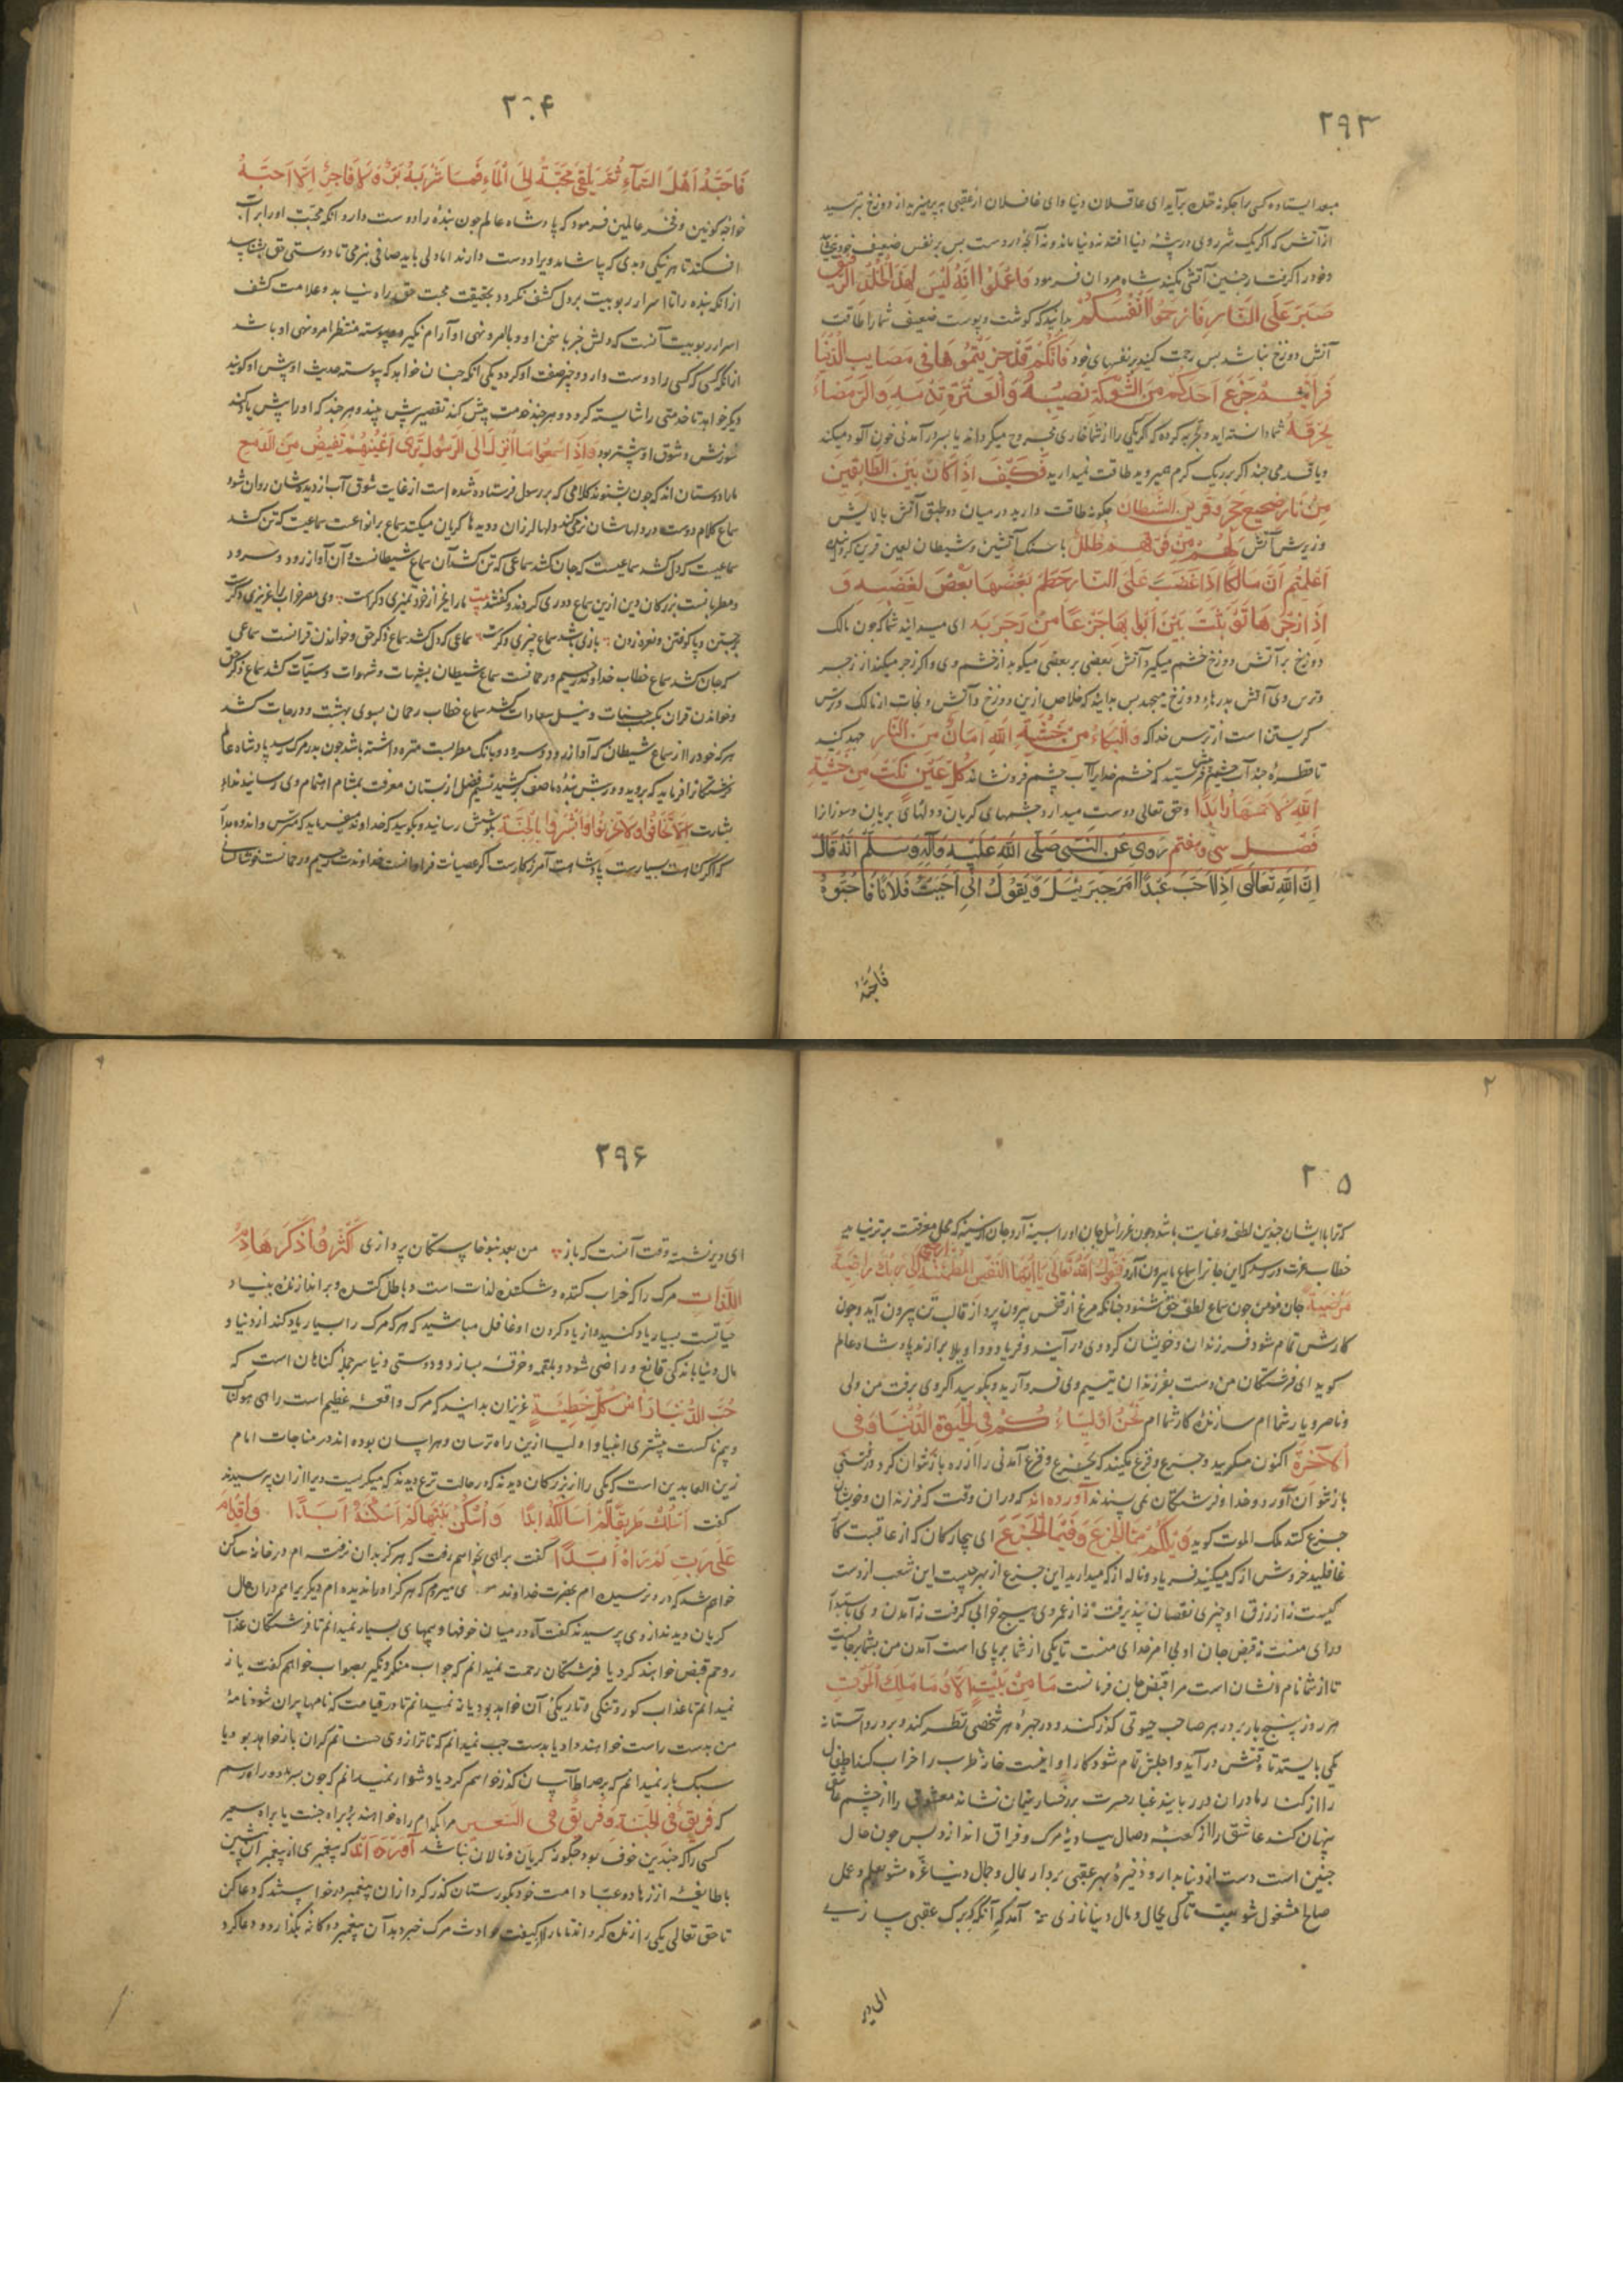 ۲۹۳
مبعد ایستاده کسی را چگونه خنک برآید ای عاقلان دنیا و ای غافلان از عقبی بپرهیزید از دوزخ بترسید
از آتش که اگر یک شرر وی در بیشه دنیا افتد نه دنیا ماند و نه آنچه در وست پس بر نفس ضعیف
و خود را گرفتار چنین آتشی مکنید شاه مردان فرمود فَاعْلَمُوا اَنَّهُ لَيْسَ لِهٰذَا الْجِلْدِ الرَّقِيقِ
صَبَرَ عَلَى النَّارِ فَارْحَمُوا اَنْفُسَكُمْ بدانید که گوشت و پوست ضعیف شما را طاقت
آتش دوزخ نباشد پس رحمت کنید بر نفسهای خود فَاِنَّكُمْ قَدْ جَرَّبْتُمُوهَا فِي مَصَايِبِ الدُّنْيَا
فَرَاَيْتُمْ جَزَعَ اَحَدِكُمْ مِنَ الشَّوْكَةِ تُصِيبُهُ وَالْعَثْرَةِ تُدْمِيهِ وَالرَّمْضَاءِ
تُحْرِقُهُ شما دانسته اید و تجربه کرده که اگر یکی را از شما خاری مجروح میگرداند یا بسر در آمدنی خون آلود میکند
و یا قدمی چند اگر بر ریک گرم میروید طاقت نمیدارید فَكَيْفَ اِذَا كَانَ بَيْنَ الطَّابِقَيْنِ
مِنْ نَارٍ ضَجِيعَ حَجَرٍ وَقَرِينَ الشَّيْطَانِ چگونه طاقت دارید در میان دو طبق آتش بالایش
و زیرش آتش لَهُمْ مِنْ فَوْقِهِمْ ظُلَلٌ با سنگ آتشین و شیطان لعین قرین کردانیده
اَعَلِمْتُمْ اَنَّ مَالِكًا اِذَا غَضِبَ عَلَى النَّارِ حَطَمَ بَعْضُهَا بَعْضً لِغَضَبِهِ وَ
اِذَا زَجَرَهَا تَوَثَّبَتْ بَيْنَ اَبْوَابِهَا جَزَعًا مِنْ زَجْرَتِهِ ای میدانید شما که چون مالک
دوزخ بر آتش دوزخ خشم میگیرد آتش بعضی بر بعضی میکوبد از خشم وی و اگر زجر میکند از زجر
و ترس وی آتش بدرهای دوزخ میجهد پس بدانید که خلاص ازین دوزخ و آتش و نجات از مالک و ترس
گریستن است از ترس خدا که وَالْبُكَاءُ مِنْ خَشْيَةِ اللهِ اَمَانٌ مِنَ النَّارِ جهد کنید
تا قطرهٔ چند آب چشم پیش فرستید که خشم خدایرا آب چشم فرونشاند كُلُّ عَيْنٍ بَكَتْ مِنْ خَشْيَةِ
اللهِ لَا تَمَسُّهَا نَارٌ اَبَدًا و حق تعالی دوست میدارد چشمهای گریان و دلهای بریان و سوزان را
فصل سی و هفتم رَوِيَ عَنِ النَّبِيِّ صَلَّى اللهُ عَلَيْهِ وَآلِهِ وَسَلَّمَ اَنَّهُ قَالَ
اِنَّ اللهَ تَعَالَى اِذَا اَحَبَّ عَبْدًا اَمَرَ جِبْرَئِيلَ وَيَقُولُ اِنِّي اَحْبَبْتُ فُلَانًا فَاَحِبُّوهُ
فَاَحَبَّهُ
۲۹۴
فَاَحَبَّهُ اَهْلُ السَّمَآءِ ثُمَّ يُلْقِي مَحَبَّتَهُ اِلَى الْمَاءِ فَمَا شَرِبَهُ بَرٌّ وَلَا فَاجِرٌ اِلَّا اَحَبَّهُ
خواجه کونین و فخر عالمین فرمود که پادشاه عالم چون بندهٔ را دوست دارد آنکه محبّت او را در آب
افکند تا هر نیکی و بدی که بیاشامد ویرا دوست دارند اما دلی باید صافی تا دوستی حق بشناسد
از آنکه بنده را تا اسرار ربوبیت بر دل کشف نگردد بحقیقت محبت حق راه نیابد و علامت کشف
اسرار ربوبیت آنست که دلش جز با سخن او و با امر و نهی او آرام نگیرد پیوسته منتظر امر و نهی او باشد
از آنکه کسی که کسی را دوست دارد دو چیز صفت او گردد یکی آنکه چنان خواهد که پیوسته حدیث او پیش او گویند
دیگر خواهد تا خدمتی را شایسته گردد و هر چند خدمت بیش کند تقصیر بیش بیند و هر چند که او را پیش یاد کنند
سوزش و شوق او بیشتر بود وَاِذَا سَمِعُوا مَا اُنْزِلَ اِلَى الرَّسُولِ تَرٰى اَعْيُنَهُمْ تَفِيضُ مِنَ الدَّمْعِ
ما را دوستان اند که چون بشنوند کلامی که بر رسول فرستاده شده است از غایت شوق آب از دیدهٔ شان روان شود
سماع کلام دوست در دلهاشان دلها لرزان و دیدها گریان میکند سماع بر انواعست سماعیت که تن کشد
سماعیت که دل کشد سماعیست که جان کشد سماعی که تن کشد آن سماع شیطانست و آن آواز رود و سرود
و مطربانست بزرگان دین ازین سماع دوری کردند و گفتند بیت ما را بجز از خود تمیزی دگرست
جستن و پا کوفتن و نعره زدن بازی باشد سماع چیزی دگرست سماعی که دل کشد سماع ذکر حق و خواندن قرانست سماعی
که جان کشد سماع خطاب خداوند رحیم و رحمانست سماع شیطان بشبهات و شهوات و سیّآت کشد سماع ذکر حق
و خواندن قران بکسب حسنات و نیل سعادات کشد سماع خطاب رحمان بسوی بهشت و درجات کشد
هر که خود را از سماع شیطان که آواز رود و سرود و بانک مطربست منزه داشته باشد چون بدر مرگ رسد پادشاه عالم
فرشتگانرا فرماید که بروید و در پیش بندهٔ ما صف برکشید و نسیم فضل از بستان معرفت بمشام وی رسانید ندای
بشارت اَلَّا تَخَافُوا وَلَا تَحْزَنُوا وَاَبْشِرُوا بِالْجَنَّةِ بگوش رسانید و بگویید که خداوند میفرماید که مترس و اندوه مدار
که اگر گناهت بسیارست پادشاهت آمرزگارست اگر عصیانت فراوانست خداوندت رحیم و رحمانست
۲۹۵
که ترا با ایشان چندین لطف و عنایت باشد و چون عزرائیل جان او را بسینه آرد جان از سینه که محل معرفتست برتر نیاید
خطاب عزت در رسد که این جانرا بسماع ما بیرون آرد فَيَقُولُ اللهُ تَعَالَى يَا اَيَّتُهَا النَّفْسُ الْمُطْمَئِنَّةُ ارْجِعِي اِلٰى رَبِّكِ رَاضِيَةً
مَرْضِيَّةً جان مومن چون سماع لطف حق شنود چنانکه مرغ از قفس بیرون پرد از قالب تن بیرون آید و چون
کارش تمام شود فرزندان و خویشان گرد وی در آیند و فریاد و واویلا بر آرند پادشاه عالم
گوید ای فرشتگان من دست بفرزندان یتیم وی فرود آرید و بگویید اگر وی برفت من ولی
و ناصر و یار شما ام سازندهٔ کار شما ام نَحْنُ اَوْلِيَاءُكُمْ فِي الْحَيٰوةِ الدُّنْيَا وَفِي
الْاٰخِرَةِ اکنون میگریید و جزع و فزع مکنید که بجزع و فزع آمدنی را از ره باز نتوان کرد و رفتنی
باز نتوان آورد و خدا و فرشتگان نمی پسندند آورده اند که در ان وقت که فرزندان و خویشان
جزع کنند ملک الموت گوید وَيْلَكُمْ مِمَّا الْجَزَعُ وَفِيمَا الْجَزَعُ ای بیچارگان که از عاقبت کار
غافلید خروش از که میکنید فریاد و ناله از که میدارید این جزع از بهر چیست این شعب از دست
کیست نه از رزق او چیزی نقصان پذیرفت نه از عمر وی هیچ خرابی گرفت نه آمدن وی
و رای منست نه قبض جان او بی امر خدای منست تا یکی از شما بر پای است آمدن من بشما برجاست
تا از شما نام و نشان است مرا قبض جان فرمانست مَا مِنْ بَيْتٍ اِلَّا وَمَلَكُ الْمَوْتِ
هر روز پنج بار بر در هر صاحب حیوتی گذر کند و در چهرهٔ هر شخصی نظر کند و بر در و آستانه
یکی بایستد تا وقتش در آید و اجلش تمام شود کار او خانهٔ طرب را خراب کند اطفال
را از کنار مادران در رباید غبار حسرت بر رخسار یتیمان نشاند معشوق را از چشم عاشق
پنهان کند عاشق را از کعبهٔ وصال ببادیهٔ مرک و فراق اندازد پس چون حال
چنین است دست از دنیا بدار و ذخیرهٔ بهر عقبی بردار بمال و جمال دنیا غرّه مشو بعلم و عمل
صالح مشغول شو بیت تا کی بجمال و مال دنیا نازی آمد که آنکه برگ عقبی سازی
ای دیر
۲۹۶
ای دیر نشسته وقت آنست که باز من بعد بنوخاستگان پردازی اَكْثِرُوا ذِكْرَ هَادِمِ
اللَّذَّاتِ مرک را که خراب کننده و شکننده لذات است و باطل کننده و براندازندهٔ بنیاد
حیاتست بسیار یاد کنید و از یاد کردن او غافل مباشید که هر که مرک را بسیار یاد کند از دنیا و
مال دنیا باندکی قانع و راضی شود و بلقمه و خرقهٔ بسازد و دوستی دنیا سر جملهٔ گناهان است که
حُبُّ الدُّنْيَا رَاْسُ كُلِّ خَطِيْئَةٍ عزیزان بدانید که مرک واقعهٔ عظیم است راهی هولناک
و بیمناکست پیشتر انبیا و اولیا ازین راه ترسان و هراسان بوده اند در مناجات امام
زین العابدین است که یکی را از بزرگان دیدند که در حالت نزع دیدند که میگریست ویرا از ان پرسیدند
گفت اَسْلُكُ طَرِيقًا لَمْ اَسْلُكْهُ اَبَدًا وَاَسْكُنُ بَيْتًا لَمْ اَسْكُنْهُ اَبَدًا وَاَقْدَمُ
عَلٰى رَبٍّ لَمْ اَرَاهُ اَبَدًا گفت براهی خواهم رفت که هرگز بدان نرفته ام در خانهٔ ساکن
خواهم شد که درو نرسیده ام بحضرت خداوندی میروم که هرگز او را ندیده ام دیگر برا هم در ان حال
گریان دیدند از وی پرسیدند گفت آه در میان خوفها و بیمهای بسیار نمیدانم تا فرشتگان عذاب
روحم قبض خواهند کرد یا فرشتگان رحمت نمیدانم که جواب منکر و نکیر بصواب خواهم گفت یا نه
نمیدانم تا عذاب گور و تنگی و تاریکی آن خواهد بود یا نه نمیدانم تا در قیامت که نامها پران شود نامهٔ
من بدست راست خواهند داد یا بدست چپ نمیدانم که تا ترازوی حسناتم گران بار خواهد بود یا
سبک بار نمیدانم که بر صراط آسان گذر خواهم کرد یا دشوار نمیدانم که چون بسر دو راه رسم
که فَرِيقٌ فِي الْجَنَّةِ وَفَرِيقٌ فِي السَّعِيرِ مرا بکدام راه خواهند برد براه جنت یا براه سعیر
کسی را که چندین خوف بود چگونه گریان و نالان نباشد آورده اند که پیغمبری از پیغمبران پیشین
با طایفهٔ از زهاد و عبّاد امت خود بگورستان گذر کرد از ان پیغمبر درخواستند که دعا کن
تا حق تعالی یکی را زنده گرداند تا ما را از کیفیت حوادث مرک خبر دهد آن پیغمبر دوگانه بگذارد و دعا کرد